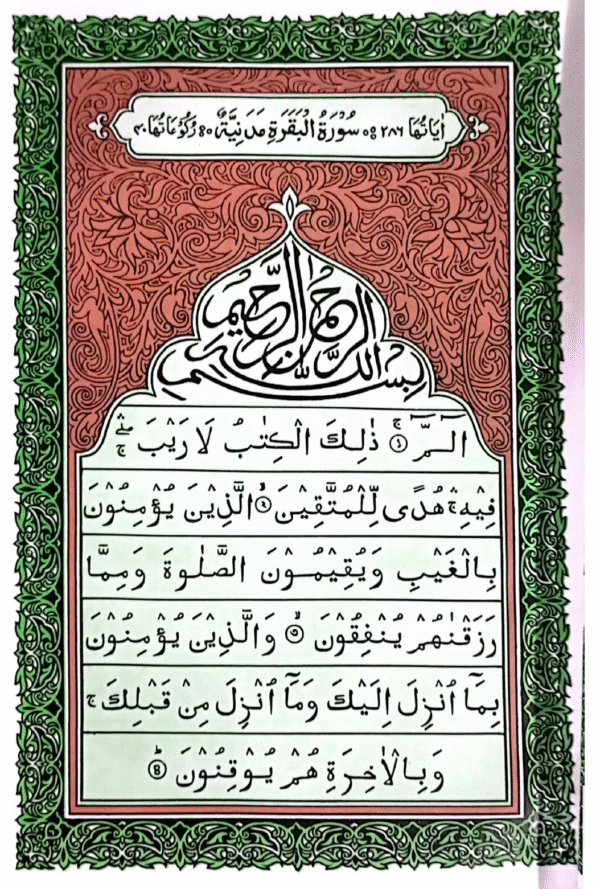 اٰيَاتُهَا ٢٨٦ سُوْرَةُ الْبَقَرَةِ مَدَنِيَّةٌ رُكُوْعَاتُهَا ٤٠
بِسْمِ اللّٰهِ الرَّحْمٰنِ الرَّحِيْمِ
الٓمّٓ ۚ ١ ذٰلِكَ الْكِتٰبُ لَا رَيْبَ ۛۖ ۚ
فِيْهِ ۛۚ هُدًى لِّلْمُتَّقِيْنَ ۙ ٢ الَّذِيْنَ يُؤْمِنُوْنَ
بِالْغَيْبِ وَيُقِيْمُوْنَ الصَّلٰوةَ وَمِمَّا
رَزَقْنٰهُمْ يُنْفِقُوْنَ ۙ ٣ وَالَّذِيْنَ يُؤْمِنُوْنَ
بِمَآ اُنْزِلَ اِلَيْكَ وَمَآ اُنْزِلَ مِنْ قَبْلِكَ ۚ
وَبِالْاٰخِرَةِ هُمْ يُوْقِنُوْنَ ؕ ٤